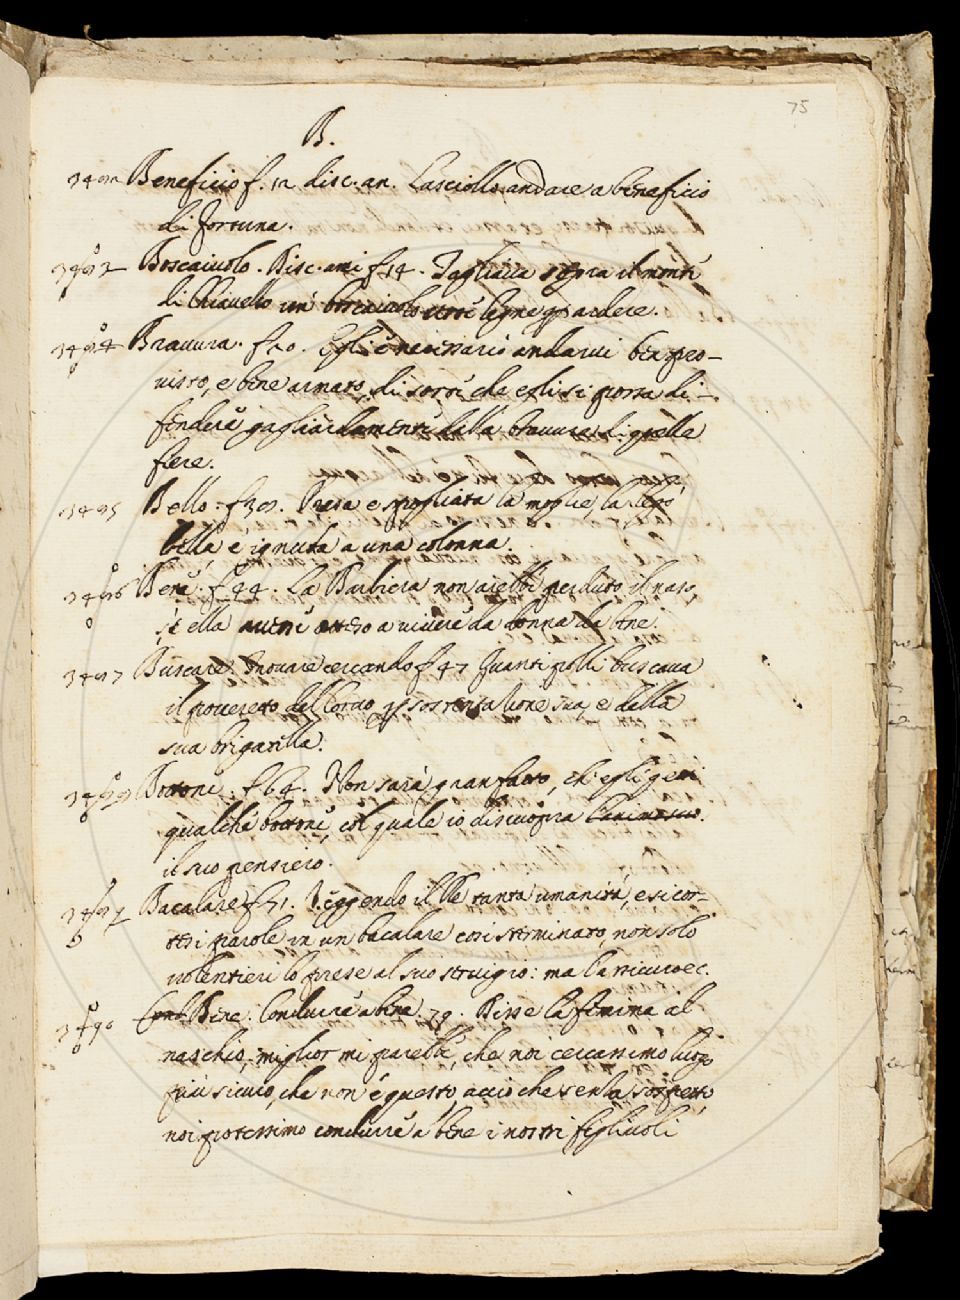 75
B.
Beneficio f. 12 disc. an. Lasciollo andare a beneficio
di fortuna.
Boscaiuolo. Disc. ani f 14. Tagliava sopra il monte
di Chiavello un boscaiuolo certe legne p ardere.
Bravura. f 20. Egli è necessario andarvi ben pro-
visto, e bene armato, di sorte che egli si possa di-
fendere gagliardamente dalla bravura di quelle
fiere.
3495 Bello. f 30. Presa e spogliata la moglie, la legò
bella e ignuda a una colonna.
Bene. f 44. La Barbiera non arebbe perduto il naso,
se ella avesse atteso a vivere da donna da bene.
3497 Buscare. Trovare cercando f 47 Quanti polli buscava
il povereto del Corvo p sostentatione sua, e della
sua brigatella.
Bottone. f 64. Non sarà gran fatto, ch'egli getti
qualche bottone, col quale io discuopra
il suo pensiero.
Bacalare f 71. Veggendo il Re tanta umanità, e sì cor-
tesi parole in un bacalare così sterminato, non solo
volentieri lo prese al suo servigio: ma l'assicurò ec.
Bene. Condurre a bene 79. Disse la femina al
maschio, miglior mi parebbe, che noi cercassimo luogo
più sicuro, che non è questo, acciò che senza sospetto
noi potessimo condurre a bene i nostri figliuoli